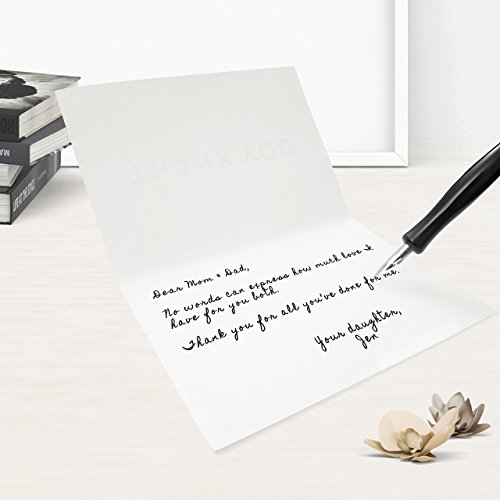 THANK YOU
Dear Mom & Dad,
No words can express how much love I
have for you both.
Thank you for all you've done for me.
Your daughter,
Jen